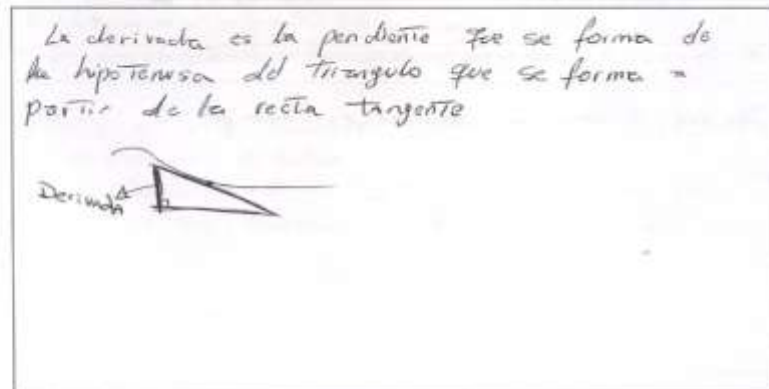 La derivada es la pendiente que se forma de
la hipotenusa del triangulo que se forma a
partir de la recta tangente
Derivada